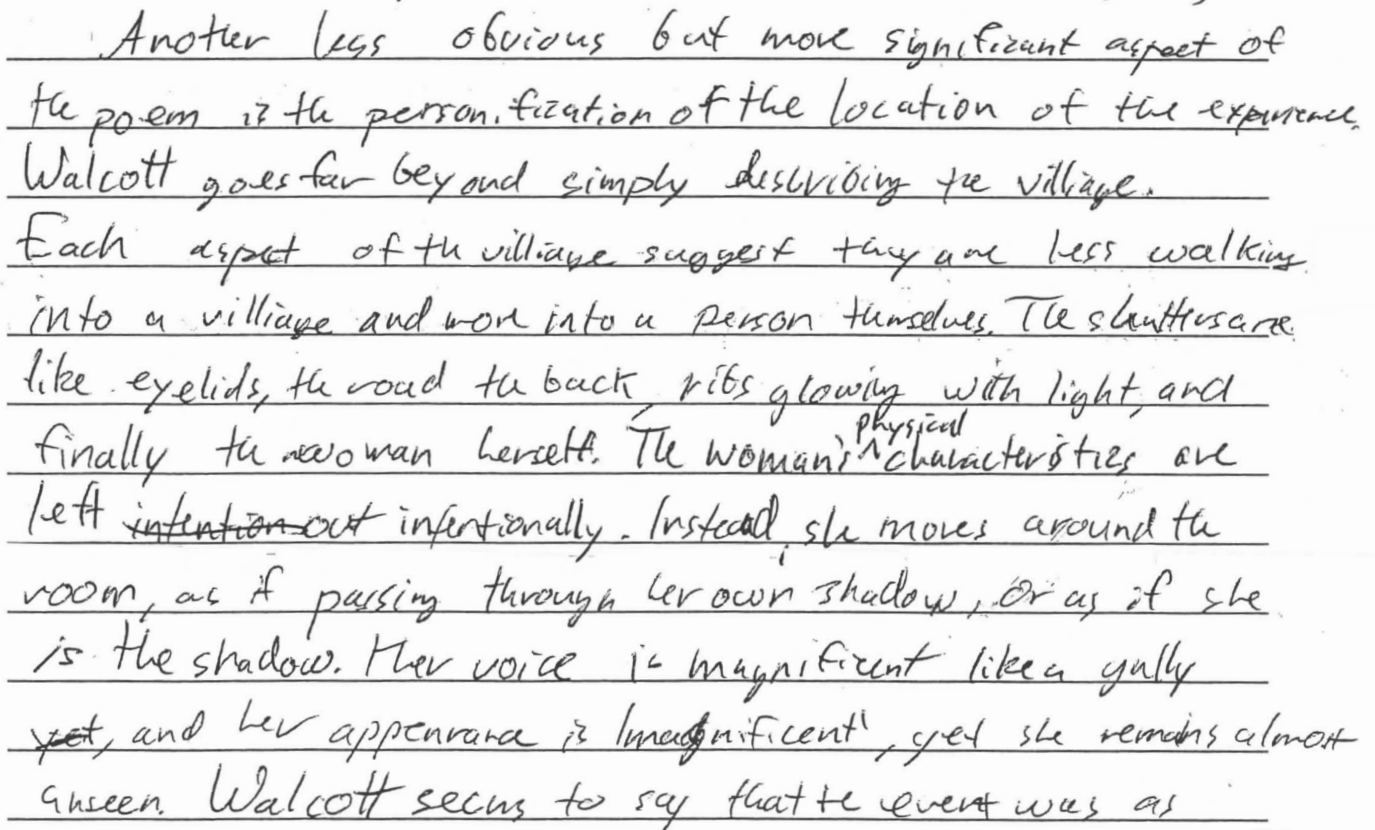 Another less obvious but more significant aspect of
the poem is the personification of the location of the experience.
Walcott goes far beyond simply describing the villiage.
Each aspect of the villiage suggest they are less walking
into a villiage and more into a person themselves. The shutters are
like eyelids, the road the back, ribs glowing with light, and
finally the woman herself. The woman's physical characteristics are
left intention out intentionally. Instead, she moves around the
room, as if passing through her own shadow, or as if she
is the shadow. Her voice is magnificent like a gully
yet, and her appearance is 'magnificent', yet she remains almost
unseen. Walcott seems to say that the event was as